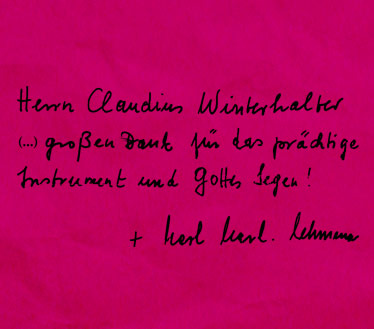 Herrn Claudius Winterhalter
(...) großen Dank für das prächtige
Instrument und Gottes Segen!
+ Karl Kard. Lehmann